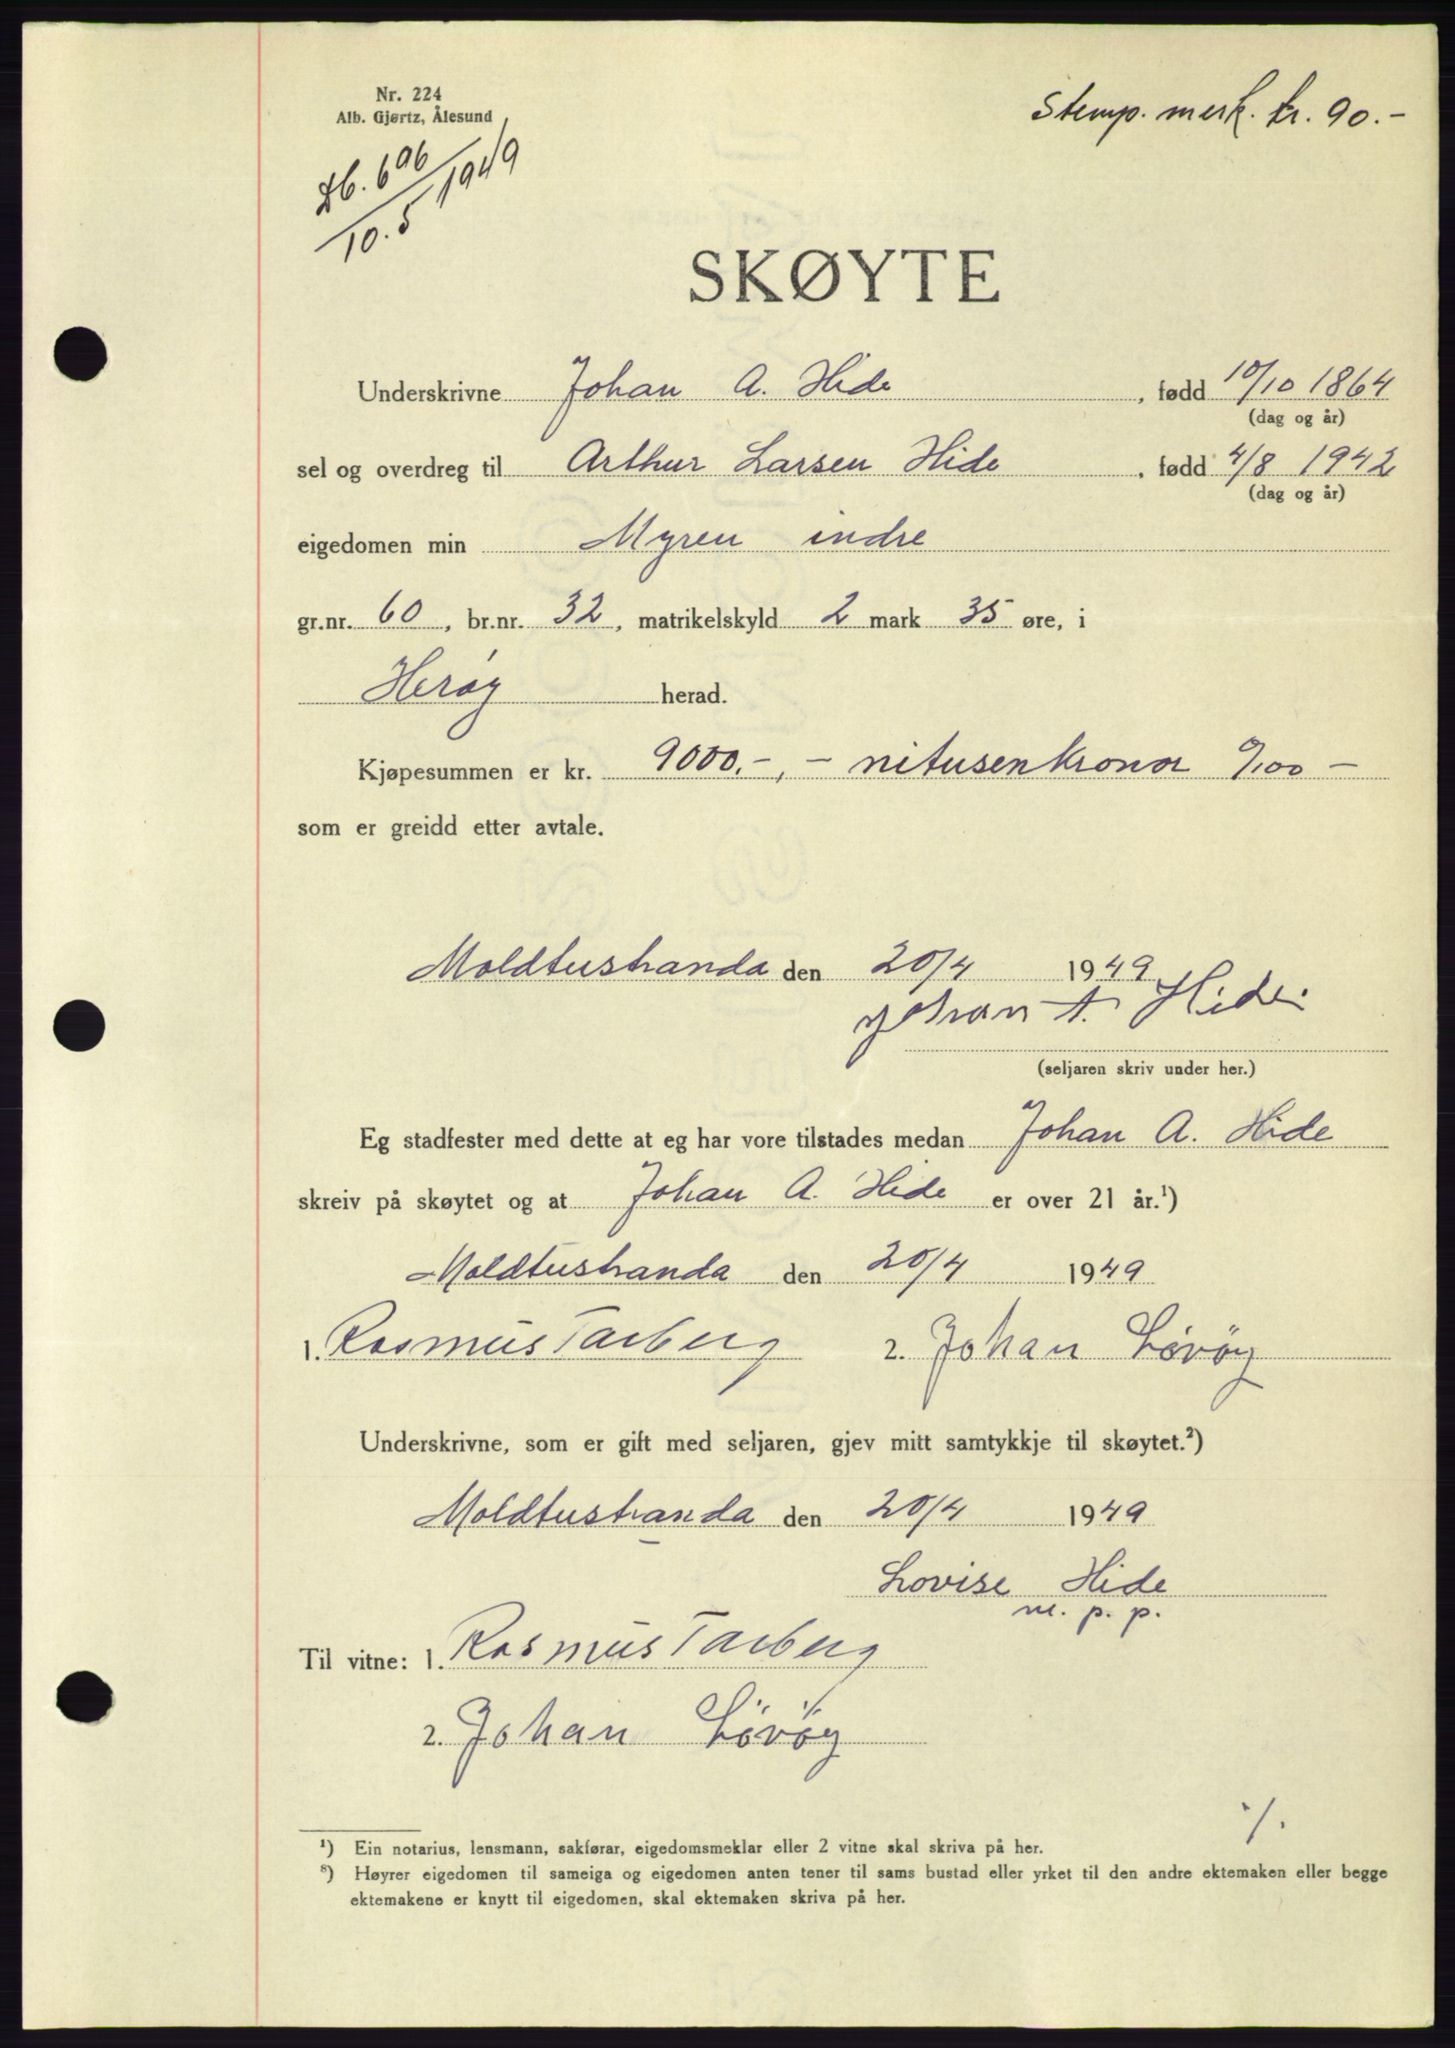 Nr. 224
Alb. Gjørtz, Ålesund
Stemp. merk. kr. 90.-
Db. 696
10.5 1949
SKØYTE
Underskrivne Johan A. Hide, fødd 10/10 1864
(dag og år)
sel og overdreg til Arthur Larsen Hide, fødd 4/8 1942
(dag og år)
eigedomen min Myren indre
gr.nr. 60, br.nr. 32, matrikelskyld 2 mark 35 øre, i
Herøy herad.
Kjøpesummen er kr. 9000.-,- nitusenkronor 0/100 -
som er greidd etter avtale.
Moldtustranda den 20/4 1949
Johan A. Hide.
(seljaren skriv under her.)
Eg stadfester med dette at eg har vore tilstades medan Johan A. Hide
skreiv på skøytet og at Johan A. Hide er over 21 år.¹)
Moldtustranda den 20/4 1949
1. Rasmus Tarberg 2. Johan Løvøy
Underskrivne, som er gift med seljaren, gjev mitt samtykkje til skøytet.²)
Moldtustranda den 20/4 1949
Lovise Hide
m. p. p.
Til vitne: 1. Rasmus Tarberg
2. Johan Løvøy
./.
¹) Ein notarius, lensmann, sakførar, eigedomsmeklar eller 2 vitne skal skriva på her.
⁸) Høyrer eigedomen til sameiga og eigedomen anten tener til sams bustad eller yrket til den andre ektemaken eller begge
ektemakene er knytt til eigedomen, skal ektemaken skriva på her.